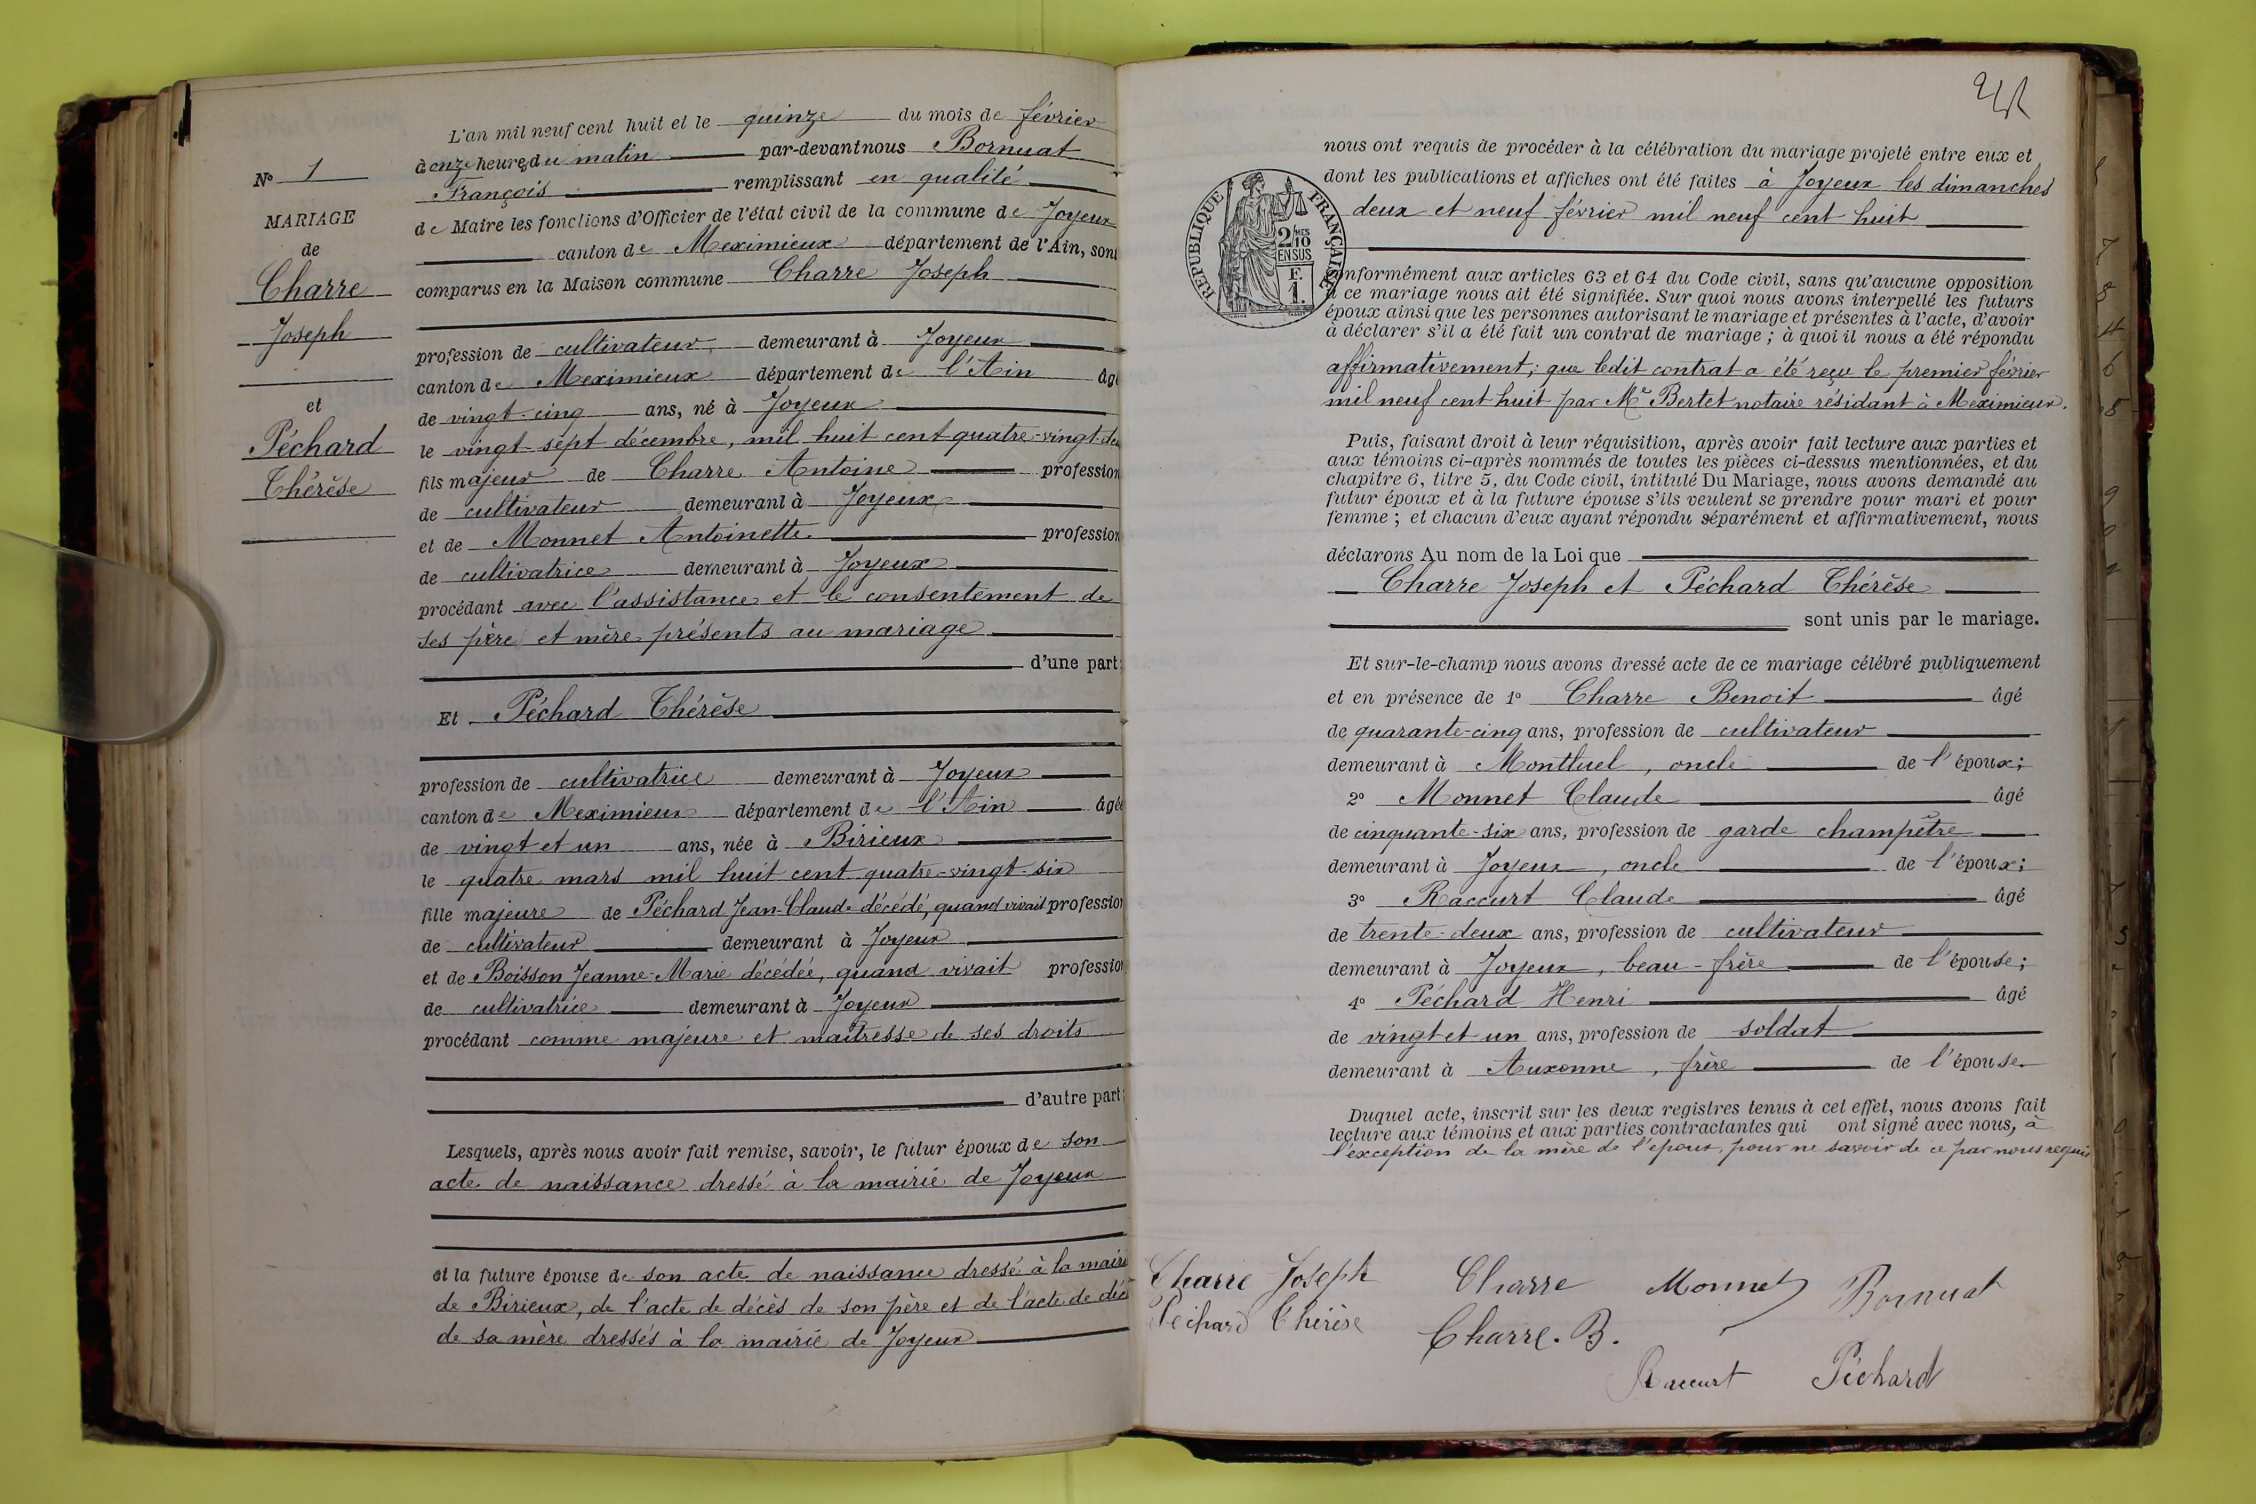 N° 1
MARIAGE
de
Charre
Joseph
et
Péchard
Thérèse
L'an mil neuf cent huit et le quinze du mois de février
à onze heures du matin par-devant nous Bornuat
François remplissant en qualité
de Maire les fonctions d'Officier de l'état civil de la commune de Joyeux
canton de Meximieux département de l'Ain, sont
comparus en la Maison commune Charre Joseph
profession de cultivateur, demeurant à Joyeux
canton de Meximieux département de l'Ain âgé
de vingt-cinq ans, né à Joyeux
le vingt-sept décembre, mil huit cent quatre-vingt-deux
fils majeur de Charre Antoine profession
de cultivateur demeurant à Joyeux
et de Monnet Antoinette profession
de cultivatrice demeurant à Joyeux
procédant avec l'assistance et le consentement de
ses père et mère présents au mariage
d'une part;
Et Péchard Thérèse
profession de cultivatrice demeurant à Joyeux
canton de Meximieux département de l'Ain âgée
de vingt et un ans, née à Birieux
le quatre mars mil huit cent quatre-vingt-six
fille majeure de Péchard Jean-Claude décédé, quand vivait profession
de cultivateur demeurant à Joyeux
et de Boisson Jeanne-Marie décédée, quand vivait profession
de cultivatrice demeurant à Joyeux
procédant comme majeure et maîtresse de ses droits
d'autre part;
Lesquels, après nous avoir fait remise, savoir, le futur époux de son
acte de naissance dressé à la mairie de Joyeux
et la future épouse de son acte de naissance dressé à la mairie
de Birieux, de l'acte de décès de son père et de l'acte de décès
de sa mère dressés à la mairie de Joyeux
RÉPUBLIQUE FRANÇAISE
2/10 MES
EN SUS
F.
1.
nous ont requis de procéder à la célébration du mariage projeté entre eux et
dont les publications et affiches ont été faites à Joyeux les dimanches
deux et neuf février mil neuf cent huit
conformément aux articles 63 et 64 du Code civil, sans qu'aucune opposition
à ce mariage nous ait été signifiée. Sur quoi nous avons interpellé les futurs
époux ainsi que les personnes autorisant le mariage et présentes à l'acte, d'avoir
à déclarer s'il a été fait un contrat de mariage; à quoi il nous a été répondu
affirmativement; que ledit contrat a été reçu le premier février
mil neuf cent huit par Me Bertet notaire résidant à Meximieux.
Puis, faisant droit à leur réquisition, après avoir fait lecture aux parties et
aux témoins ci-après nommés de toutes les pièces ci-dessus mentionnées, et du
chapitre 6, titre 5, du Code civil, intitulé Du Mariage, nous avons demandé au
futur époux et à la future épouse s'ils veulent se prendre pour mari et pour
femme; et chacun d'eux ayant répondu séparément et affirmativement, nous
déclarons Au nom de la Loi que
Charre Joseph et Péchard Thérèse
sont unis par le mariage.
Et sur-le-champ nous avons dressé acte de ce mariage célébré publiquement
et en présence de 1° Charre Benoit âgé
de quarante-cinq ans, profession de cultivateur
demeurant à Montluel, oncle de l'époux;
2° Monnet Claude âgé
de cinquante-six ans, profession de garde champêtre
demeurant à Joyeux, oncle de l'époux;
3° Raccurt Claude âgé
de trente-deux ans, profession de cultivateur
demeurant à Joyeux, beau-frère de l'épouse;
4° Péchard Henri âgé
de vingt et un ans, profession de soldat
demeurant à Auxonne, frère de l'épouse.
Duquel acte, inscrit sur les deux registres tenus à cet effet, nous avons fait
lecture aux témoins et aux parties contractantes qui ont signé avec nous, à
l'exception de la mère de l'époux, pour ne savoir de ce par nous requis
Charre Joseph Charre Monnet Bornuat
Péchard Thérèse Charre. B.
Raccurt Péchard